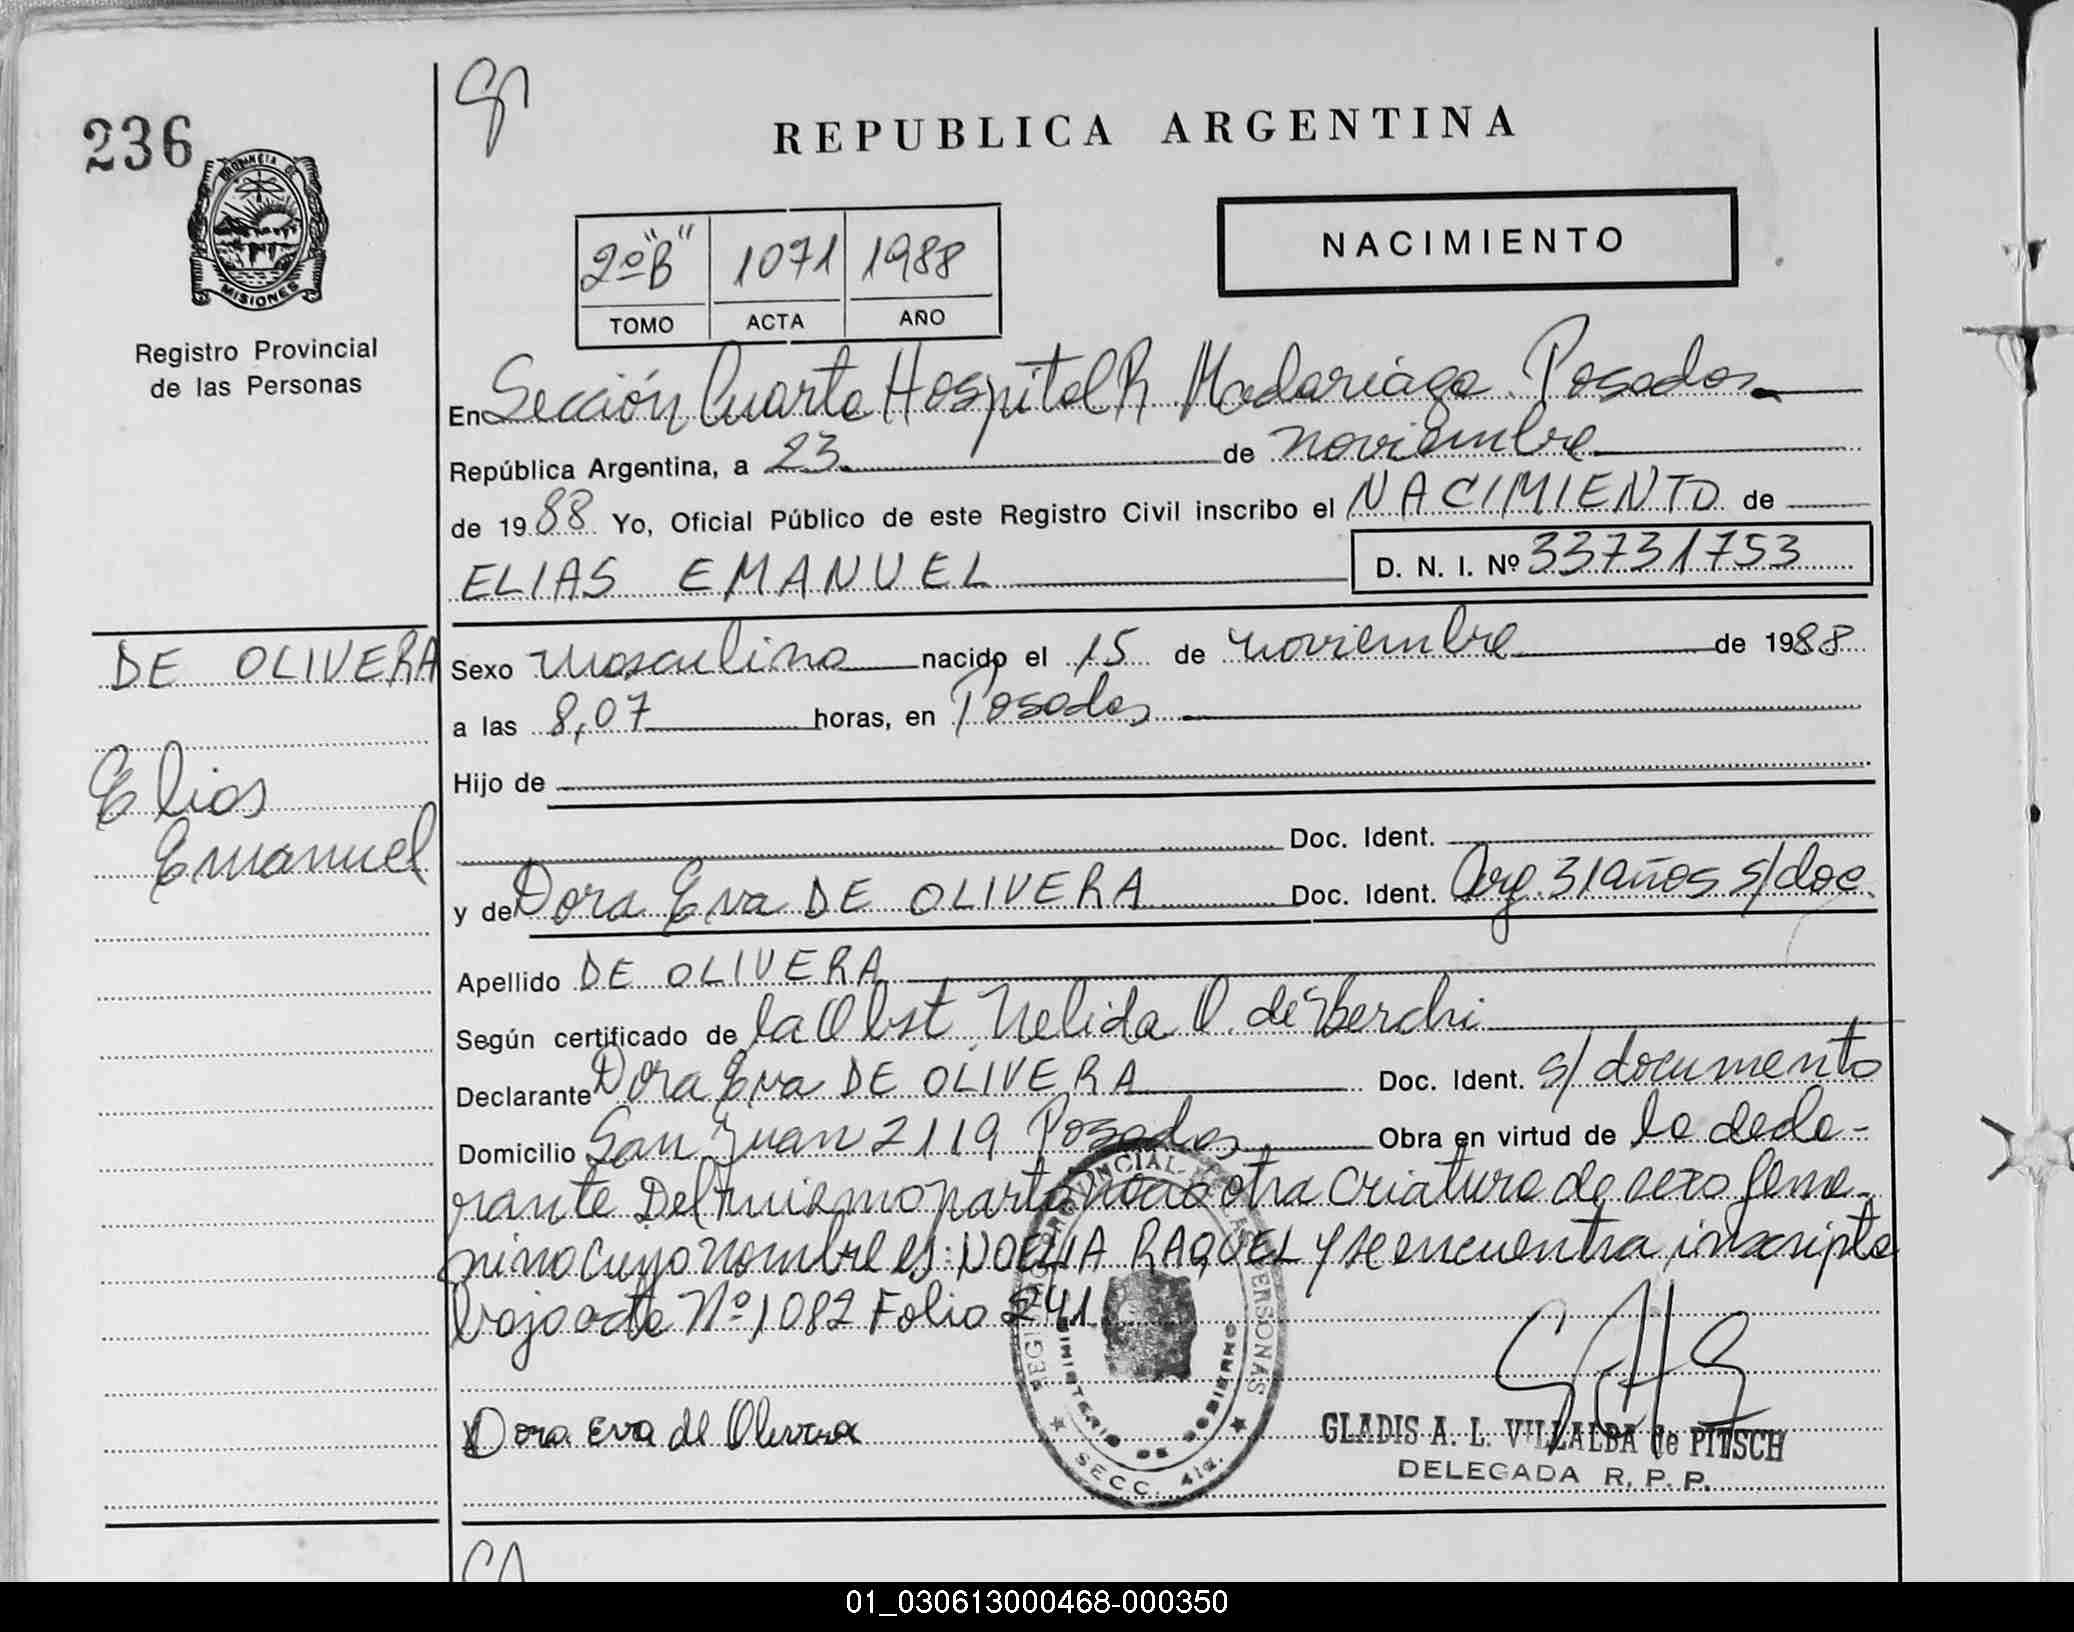 236
PROVINCIA DE
MISIONES
Registro Provincial
de las Personas
DE OLIVERA
Elias
Emanuel
REPUBLICA ARGENTINA
2º "B" 1071 1988
TOMO ACTA AÑO
NACIMIENTO
En Sección Cuarta Hospital R. Madariaga Posadas
República Argentina, a 23 de noviembre
de 1988 Yo, Oficial Público de este Registro Civil inscribo el NACIMIENTO de
ELIAS EMANUEL D. N. I. Nº 33731753
Sexo masculino nacido el 15 de noviembre de 1988
a las 8,07 horas, en Posadas
Hijo de
Doc. Ident.
y de Dora Eva DE OLIVERA Doc. Ident. Arg. 31 años s/doc
Apellido DE OLIVERA
Según certificado de la Obst. Nelida O. de
Declarante Dora Eva DE OLIVERA Doc. Ident. s/documento
Domicilio San Juan 2119 Posadas Obra en virtud de la decla-
rante Del mismo parto nació otra criatura de sexo feme-
nino cuyo nombre es: NOELIA RAQUEL y se encuentra inscripta
bajo acta Nº 1082 Folio 241
REGISTRO PROVINCIAL DE LAS PERSONAS
MINISTERIO DE GOBIERNO
SECC. 4ta.
Dora Eva de Olivera
GLADIS A. L. VILLALBA de PITSCH
DELEGADA R. P. P.
01_030613000468-000350